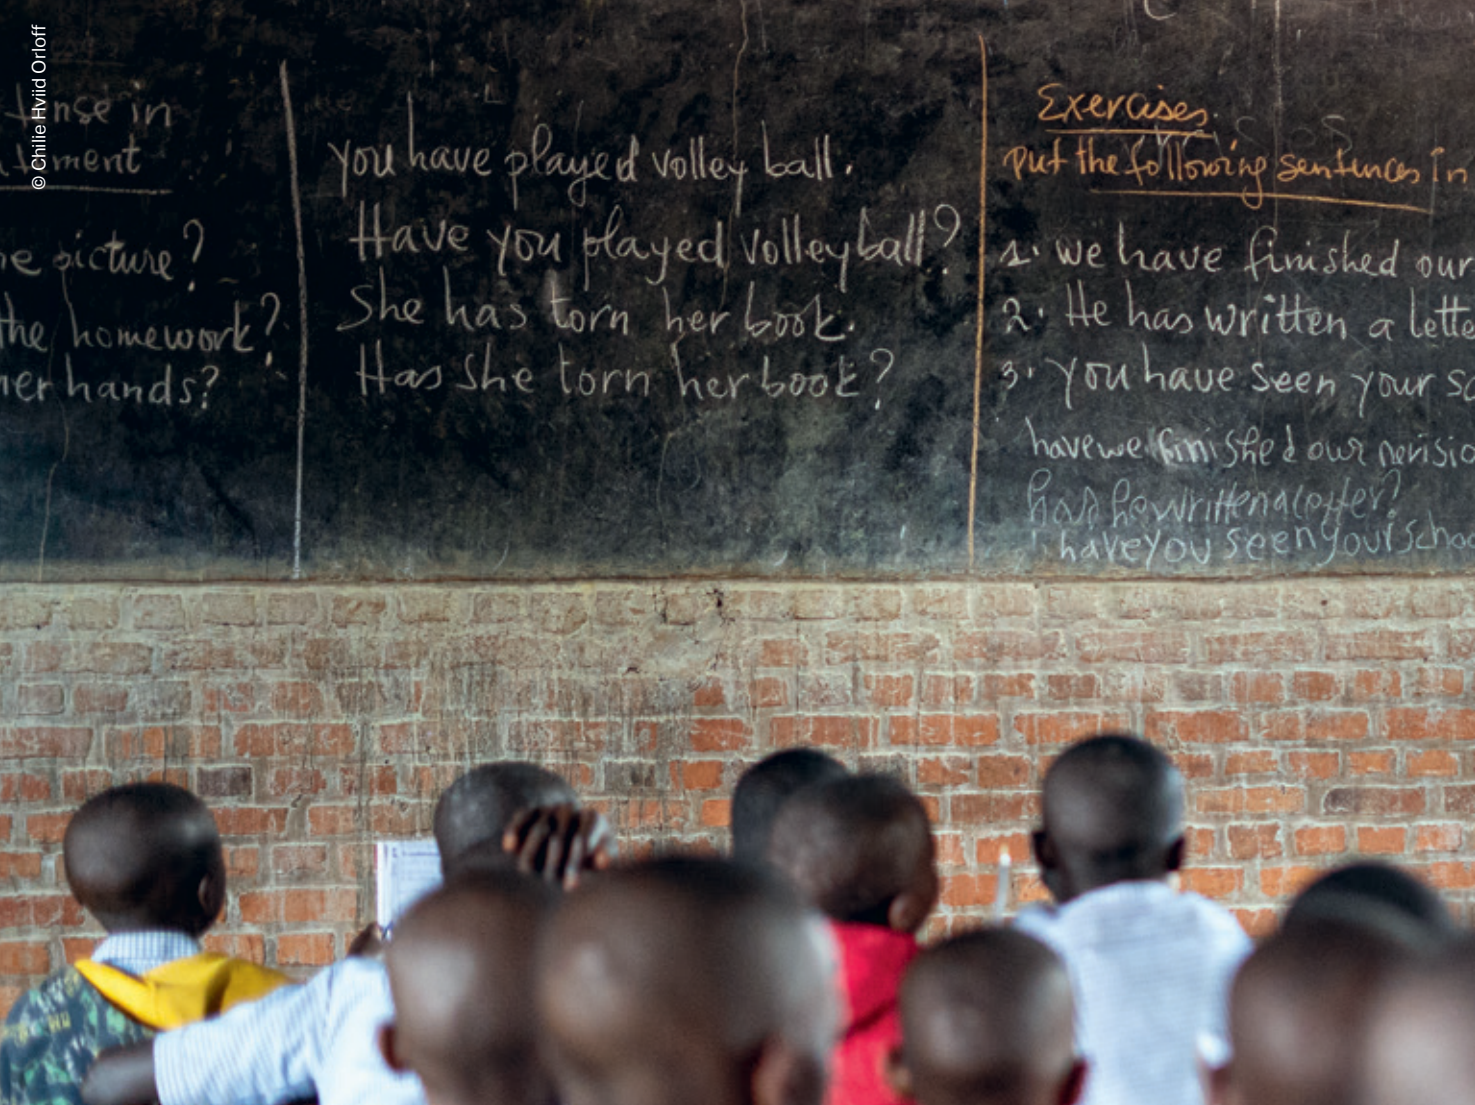 © Chilie Hviid Orloff
tense in
tement
ne picture?
the homework?
her hands?
you have played volley ball.
Have you played volleyball?
She has torn her book.
Has she torn her book?
Exercises.
put the following sentences in
1. we have finished our
2. He has written a lette
3. you have seen your sc
have we finished our revisio
has he written a letter?
have you seen your schoo